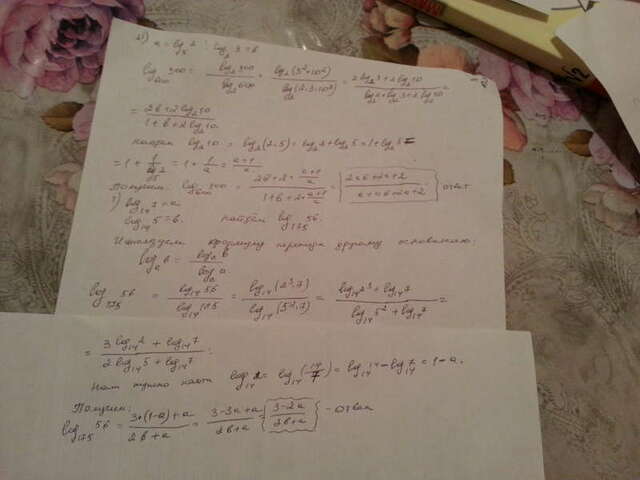 2) a = log₅ 2 ; log₂ 3 = b
log₆₀₀ 900 = log₂ 900 / log₂ 600 = log₂(3²·10²) / log₂(2·3·10²) = (2 log₂ 3 + 2 log₂ 10) / (log₂ 2 + log₂ 3 + 2 log₂ 10) =
= (2b + 2 log₂ 10) / (1 + b + 2 log₂ 10)
найдём log₂ 10 = log₂(2·5) = log₂ 2 + log₂ 5 = 1 + log₂ 5 =
= 1 + 1/log₅ 2 = 1 + 1/a = (a+1)/a
Получим: log₆₀₀ 900 = (2b + 2·(a+1)/a) / (1 + b + 2·(a+1)/a) = (2ab+2a+2) / (a+ab+2a+2) ответ
1) log₁₄ 7 = a
log₁₄ 5 = b. найдём log₁₇₅ 56.
Используем формулу перехода к другому основанию:
log b = log b / log a
log₁₇₅ 56 = log₁₄ 56 / log₁₄ 175 = log₁₄(2³·7) / log₁₄(5²·7) = (log₁₄ 2³ + log₁₄ 7) / (log₁₄ 5² + log₁₄ 7) =
= (3 log₁₄ 2 + log₁₄ 7) / (2 log₁₄ 5 + log₁₄ 7) ;
Нам нужно найти log₁₄ 2 = log₁₄(14/7) = log₁₄ 14 − log₁₄ 7 = 1 − a.
Получим:
log₁₇₅ 56 = (3·(1−a)+a) / (2b+a) = (3−3a+a) / (2b+a) = (3−2a) / (2b+a) - ответ
1/2